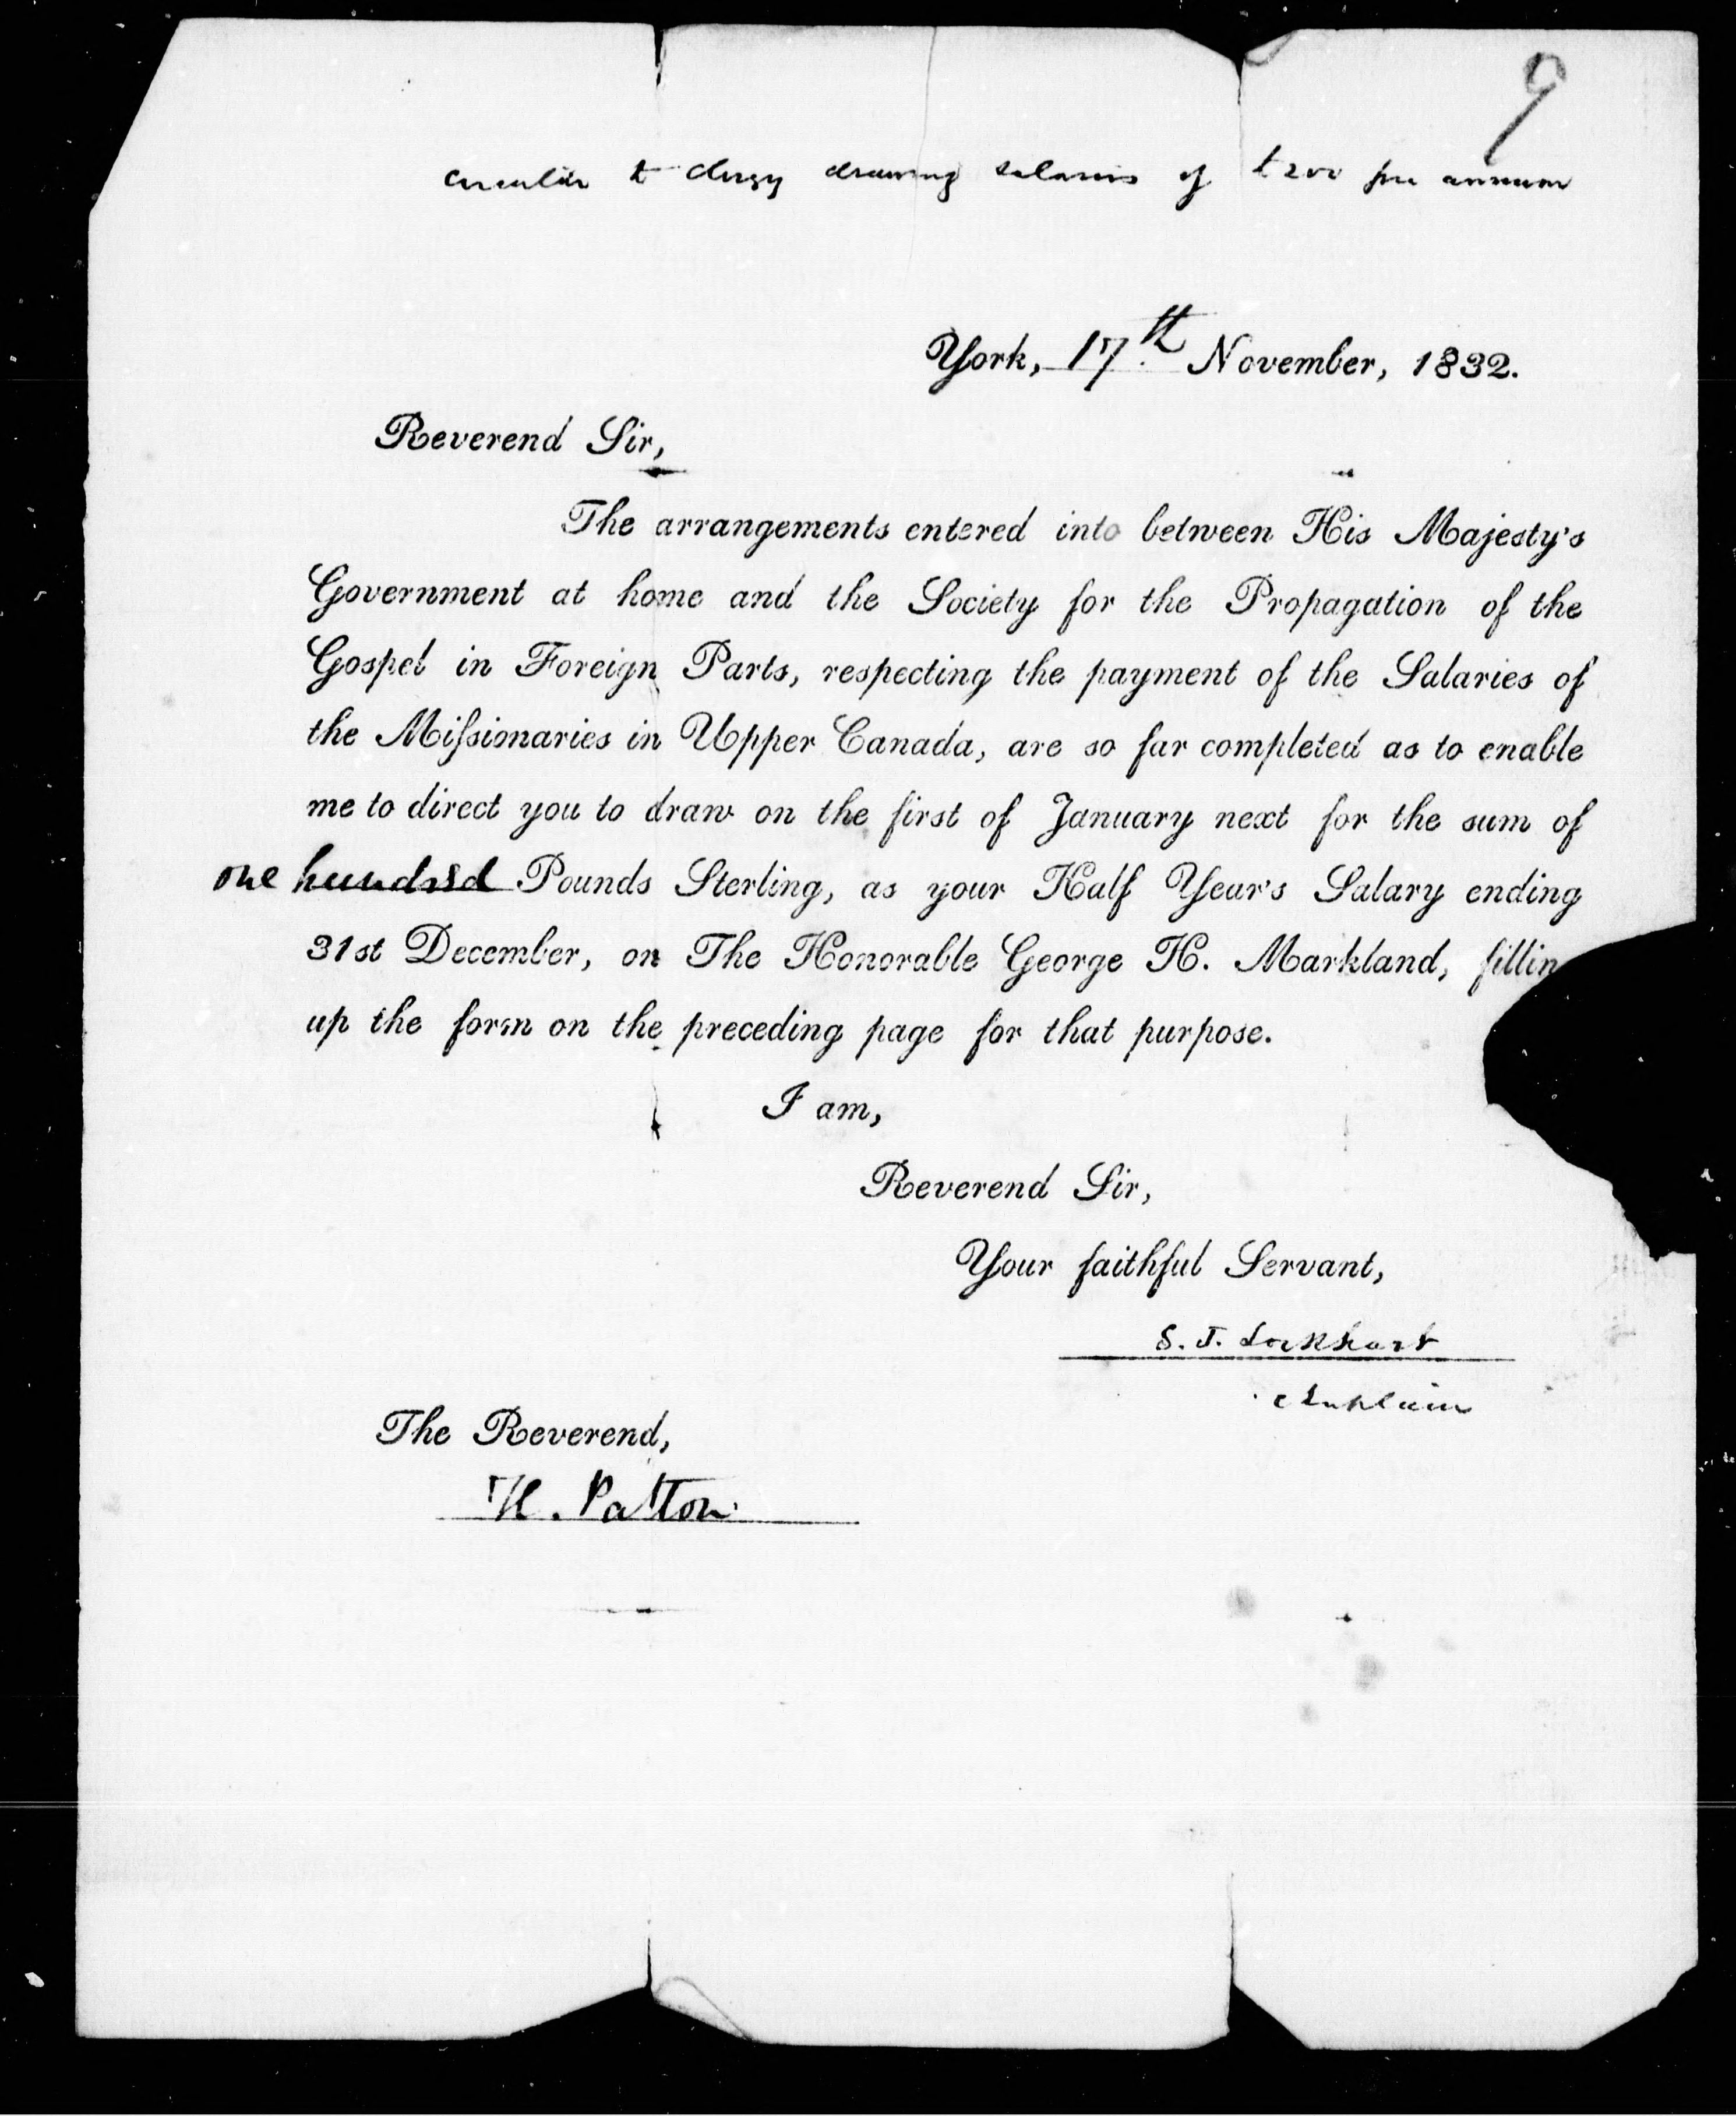 9
Circular to clergy drawing salaries of £200 per annum
York, 17th November, 1832.
Reverend Sir,
The arrangements entered into between His Majesty's
Government at home and the Society for the Propagation of the
Gospel in Foreign Parts, respecting the payment of the Salaries of
the Miſsionaries in Upper Canada, are so far completed as to enable
me to direct you to draw on the first of January next for the sum of
one hundred Pounds Sterling, as your Half Year's Salary ending
31st December, on The Honorable George H. Markland, fillin
up the form on the preceding page for that purpose.
I am,
Reverend Sir,
Your faithful Servant,
S. J. Lockhart
Chaplain
The Reverend,
H. Patton